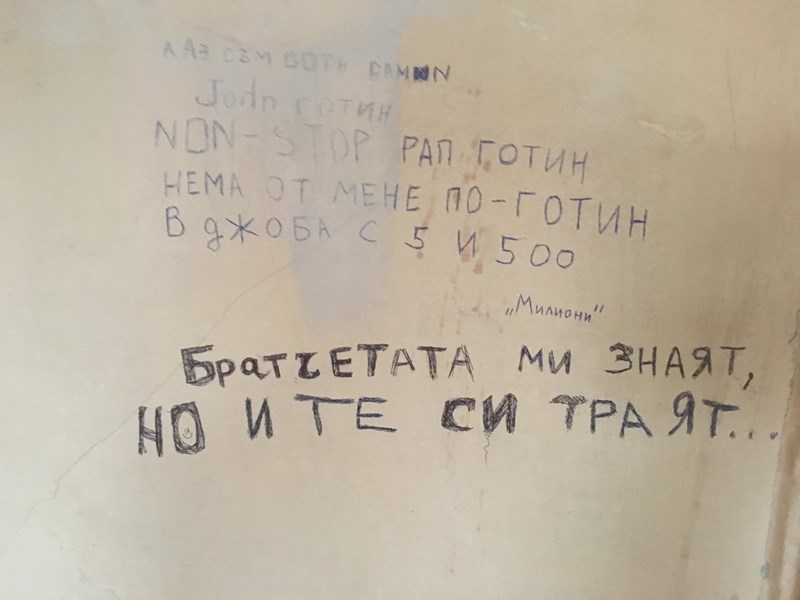 А АЗ СЪМ ВОТН DAMNN
John ГОТИН
NON-STOP РАП ГОТИН
НЕМА ОТ МЕНЕ ПО-ГОТИН
В ДЖОБА С 5 И 500
„Милиони“
БратчЕТАТА МИ ЗНАЯТ,
НО И ТЕ СИ ТРАЯТ...